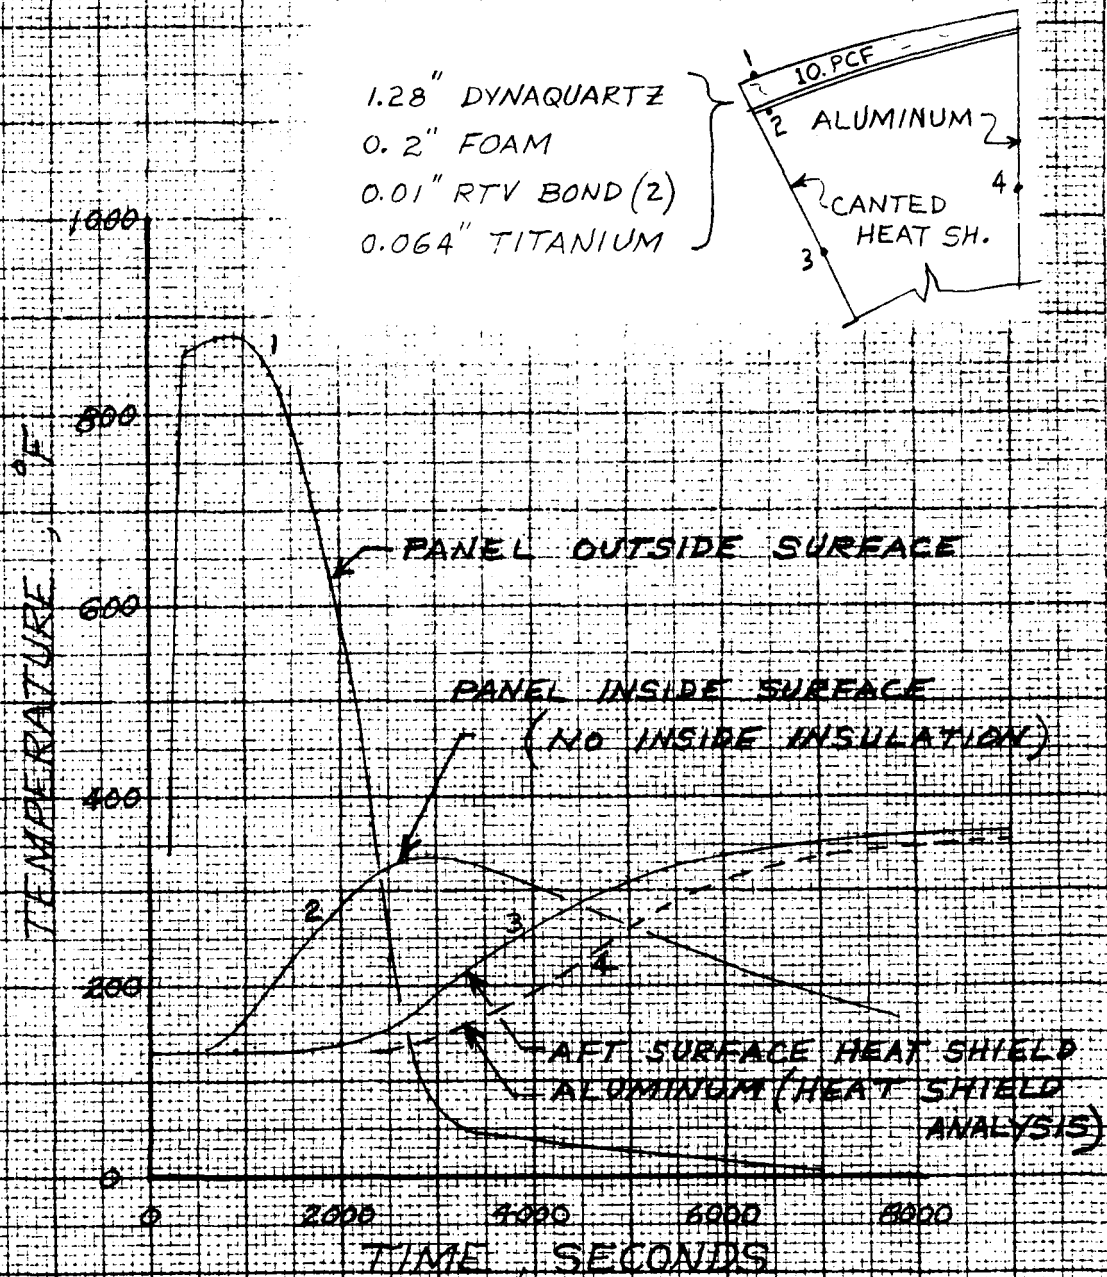 1.28" DYNAQUARTZ
0.2" FOAM
0.01" RTV BOND (2)
0.064" TITANIUM
1
10. PCF
2
ALUMINUM
4
CANTED
HEAT SH.
3
1000
800
600
400
200
0
TEMPERATURE, °F
1
PANEL OUTSIDE SURFACE
PANEL INSIDE SURFACE
(NO INSIDE INSULATION)
2
3
4
AFT SURFACE HEAT SHIELD
ALUMINUM (HEAT SHIELD
ANALYSIS)
0
2000
4000
6000
8000
TIME, SECONDS